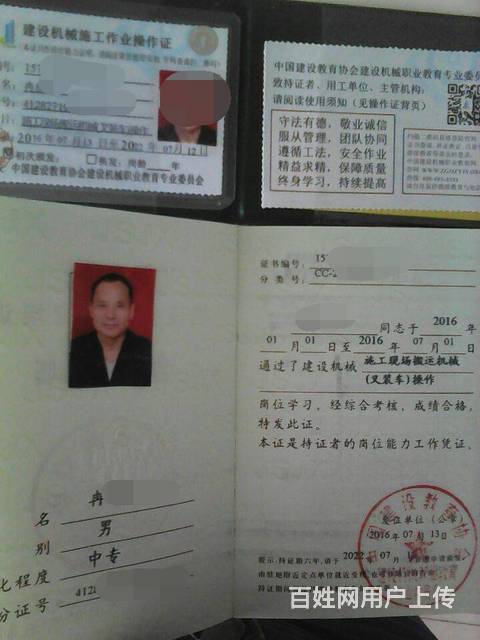 建设机械施工作业操作证
15
冉
41282719
施工现场搬运机械叉装车操作
2016年07月13日至2022年07月12日
初次领发: 换发: 两龄 年
中国建设教育协会建设机械职业教育专业委员会
中国建设教育协会建设机械职业教育专业委员
致持证者、用工单位、主管机构:
请阅读使用须知（见操作证背页）
守法有德，敬业诚信
服从管理，团队协同
遵循工法，安全作业
精益求精，保障质量
终身学习，持续提高
证书编号: 15
分类号: CC-
同志于 2016 年
01 月 01 日至 2016 年 07 月 01
通过了建设机械 施工现场搬运机械
(叉装车)操作
岗位学习，经综合考核，成绩合格，
特发此证。
本证是持证者的岗位能力工作凭证。
名 冉
别 男
化程度 中专
份证号 412
发证单位（公章）
2016年 07月 13日
中国建设教育协会
提示: 持证期六年，请于 2022 年 07 月
百姓网用户上传